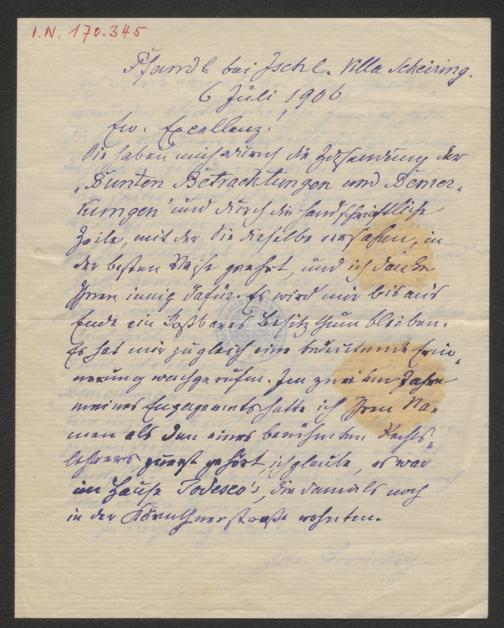 I.N. 170.345
Pfandl bei Ischl. Villa Scheiring.
6 Juli 1906
Ew. Excellenz!
Sie haben mich durch die Zusendung der
„Bunten Betrachtungen und Bemer-
kungen" und durch die handschriftliche
Zeile, mit der Sie dieselbe versahen, in
der besten Weise geehrt, und ich danke
Ihnen innig dafür. Es wird mir bis ans
Ende ein kostbares Besitzthum bleiben.
Es hat mir zugleich eine bedeutende Erin-
nerung wachgerufen. Im zweiten Jahre
meines Engagements hatte ich Ihren Na-
men als den eines berühmten Rechts-
lehrers zuerst gehört, ich glaube, es war
im Hause Todesco's, die damals noch
in der Kärnthnerstraße wohnten.